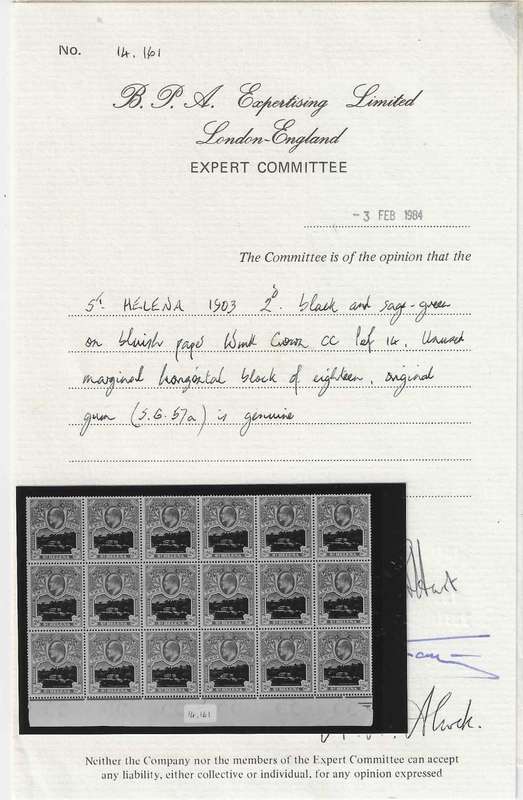 No. 14.161
B. P. A. Expertising Limited
London-England
EXPERT COMMITTEE
-3 FEB 1984
The Committee is of the opinion that the
St. HELENA 1903 2d. black and sage-green
on bluish paper Wmk Crown CC Perf 14. Unused
marginal horizontal block of eighteen, original
gum (S.G. 57a) is genuine
ST HELENA
14.161
Neither the Company nor the members of the Expert Committee can accept
any liability, either collective or individual, for any opinion expressed